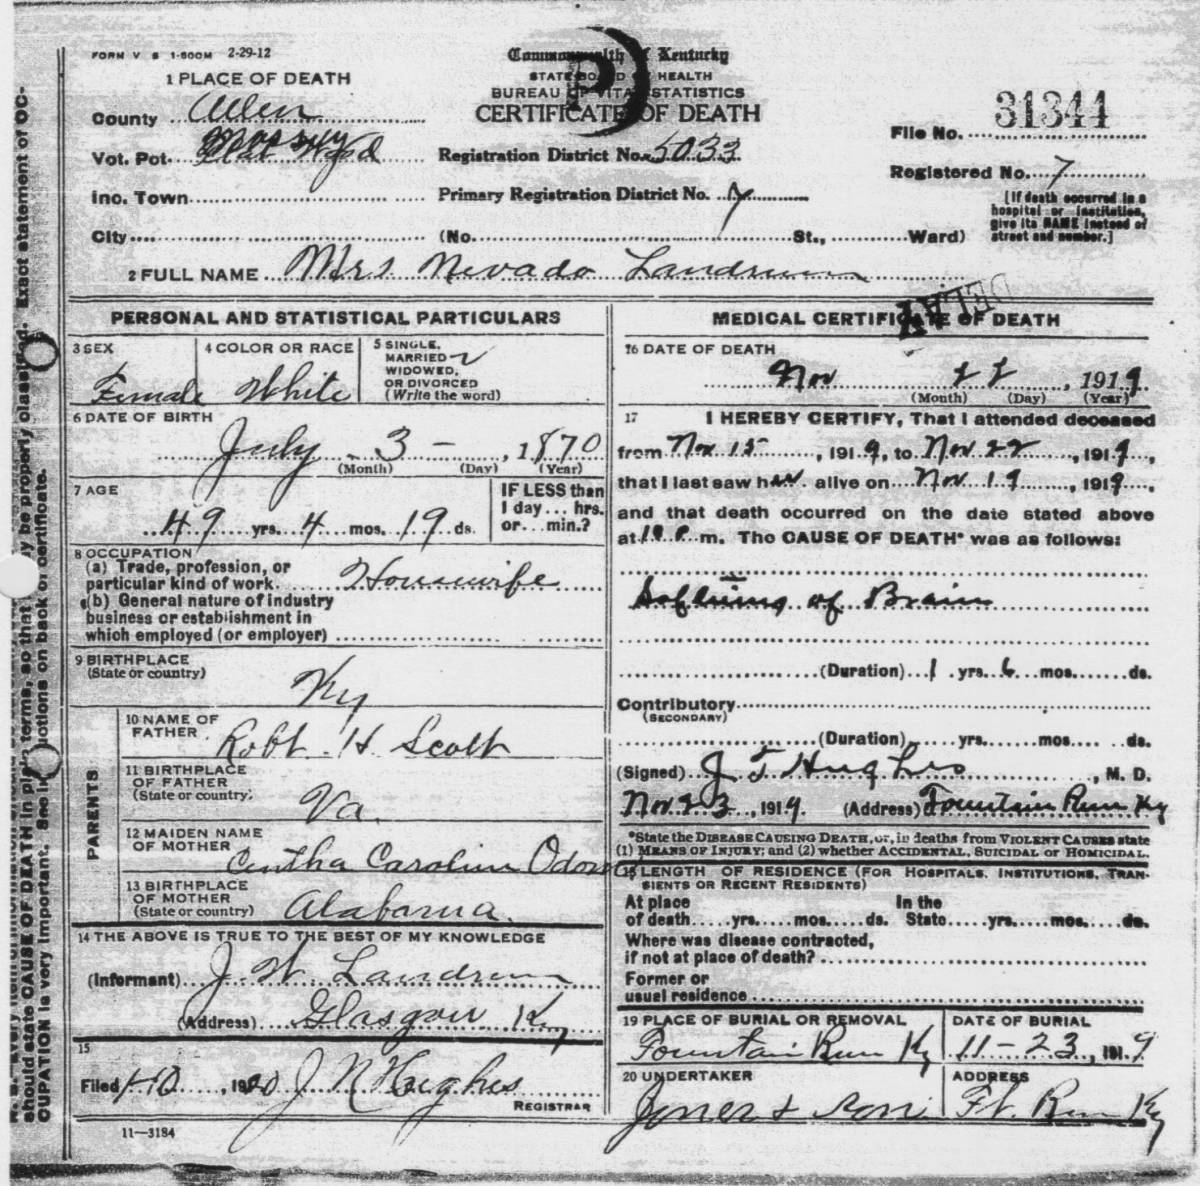 FORM V S 1-500M 2-29-12
Commonwealth of Kentucky
STATE BOARD OF HEALTH
BUREAU OF VITAL STATISTICS
CERTIFICATE OF DEATH
P
1 PLACE OF DEATH
County Allen
Vot. Pct.
Inc. Town
City
Registration District No. 5033
Primary Registration District No. 7
(No. St., Ward)
File No. 31344
Registered No. 7
[If death occurred in a
hospital or institution,
give its NAME instead of
street and number.]
2 FULL NAME Mrs Nevado Landrum
PERSONAL AND STATISTICAL PARTICULARS
3 SEX
Female
4 COLOR OR RACE
White
5 SINGLE,
MARRIED
WIDOWED,
OR DIVORCED
(Write the word)
6 DATE OF BIRTH
July 3 - , 1870
(Month) (Day) (Year)
7 AGE
49 yrs. 4 mos. 19 ds.
IF LESS than
1 day ... hrs.
or ... min.?
8 OCCUPATION
(a) Trade, profession, or
particular kind of work. Housewife
(b) General nature of industry
business or establishment in
which employed (or employer)
9 BIRTHPLACE
(State or country)
Ky
PARENTS
10 NAME OF
FATHER
Robt. H Scott
11 BIRTHPLACE
OF FATHER
(State or country)
Va.
12 MAIDEN NAME
OF MOTHER
Cintha Caroline
13 BIRTHPLACE
OF MOTHER
(State or country)
Alabama.
14 THE ABOVE IS TRUE TO THE BEST OF MY KNOWLEDGE
(Informant) J. W. Landrum
(Address) Glasgow Ky
15
Filed 1-10, 1920 J N Hughes
REGISTRAR
11-3184
MEDICAL CERTIFICATE OF DEATH
DELAY
16 DATE OF DEATH
Nov 22, 1919
(Month) (Day) (Year)
17 I HEREBY CERTIFY, That I attended deceased
from Nov 15, 1919, to Nov 22, 1919,
that I last saw her alive on Nov 19, 1919,
and that death occurred on the date stated above
at 10 P m. The CAUSE OF DEATH* was as follows:
Softning of Brain
(Duration) 1 yrs. 6 mos. ds.
Contributory
(SECONDARY)
(Duration) yrs. mos. ds.
(Signed) J T Hughes, M. D.
Nov 23, 1919 (Address) Fountain Run Ky
*State the DISEASE CAUSING DEATH, or, in deaths from VIOLENT CAUSES state
(1) MEANS OF INJURY; and (2) whether ACCIDENTAL, SUICIDAL or HOMICIDAL.
18 LENGTH OF RESIDENCE (FOR HOSPITALS, INSTITUTIONS, TRAN-
SIENTS OR RECENT RESIDENTS)
At place In the
of death yrs. mos. ds. State yrs. mos. ds.
Where was disease contracted,
if not at place of death?
Former or
usual residence
19 PLACE OF BURIAL OR REMOVAL
Fountain Run Ky
DATE OF BURIAL
11-23, 1919
20 UNDERTAKER
Jones & Son
ADDRESS
Ft. Run Ky
should state CAUSE OF DEATH in plain terms, so that it may be properly classified. Exact statement of OC-
CUPATION is very important. See instructions on back of certificate.